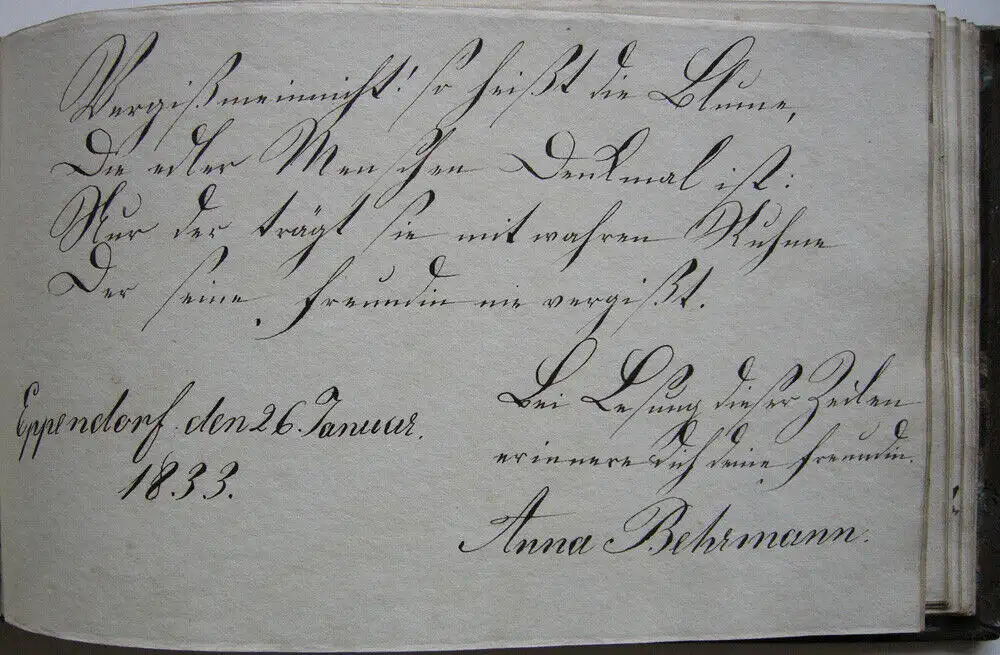 Vergißmeinnicht! so heißt die Blume,
Die edler Menschen Denkmal ist:
Nur der trägt sie mit wahren Ruhme
Der seine Freundin nie vergißt.
Eppendorf. den 26. Januar.
1833.
Bei Lesung dieser Zeilen
erinnere dich deine Freundin.
Anna Behrmann.